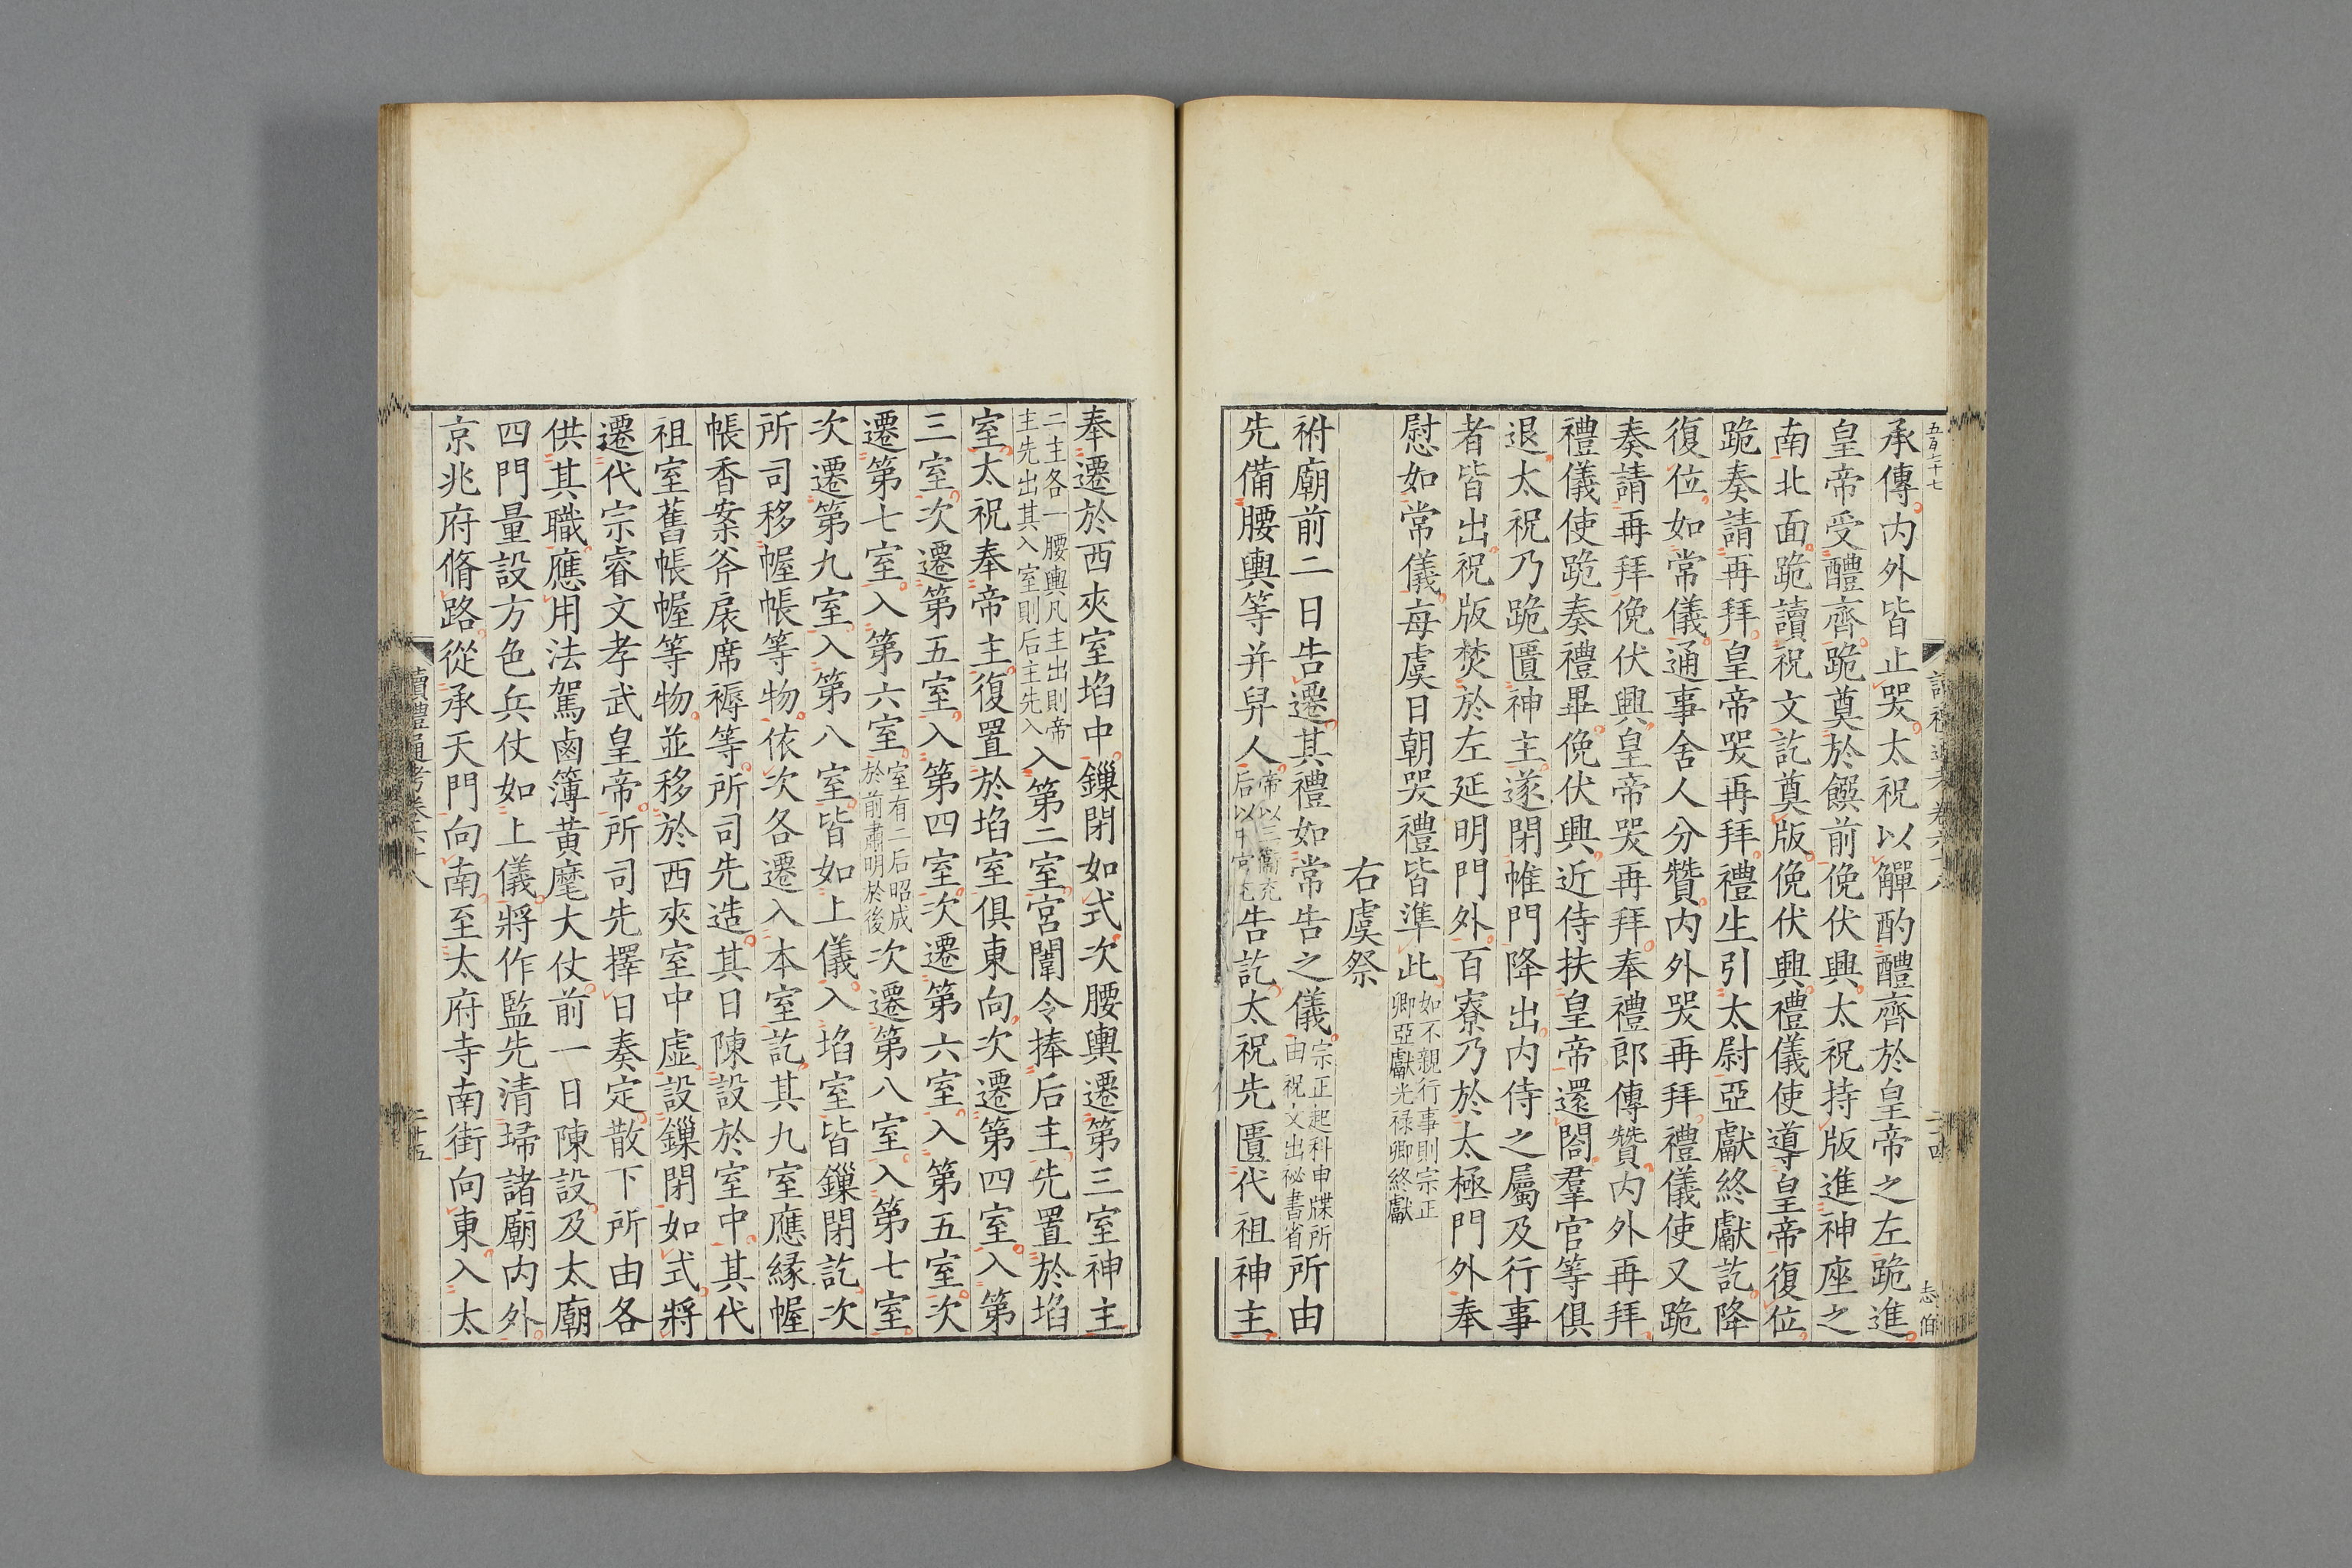 承傳內外皆止哭太祝以觶酌醴齊於皇帝之左跪進
皇帝受醴齊跪奠於饌前俛伏興太祝持版進神座之
南北面跪讀祝文訖奠版俛伏興禮儀使導皇帝復位
跪奏請再拜皇帝哭再拜禮生引太尉亞獻終獻訖降
復位如常儀通事舍人分贊內外哭再拜禮儀使又跪
奏請再拜俛伏興皇帝哭再拜奉禮郎傳贊內外再拜
禮儀使跪奏禮畢俛伏興近侍扶皇帝還閤羣官等俱
退太祝乃跪匱神主遂閉帷門降出內侍之屬及行事
者皆出祝版焚於左延明門外百寮乃於太極門外奉
慰如常儀每虞日朝哭禮皆準此如不親行事則宗正卿亞獻光祿卿終獻
右虞祭
祔廟前二日告遷其禮如常告之儀宗正起科申牒所由祝文出祕書省所由
先備腰輿等幷舁人帝以三衞充后以中官充告訖太祝先匱代祖神主
奉遷於西夾室埳中鏁閉如式次腰輿遷第三室神主
二主各一腰輿凡主出則帝主先出其入室則后主先入入第二室宮闈令捧后主先置於埳
室太祝奉帝主復置於埳室俱東向次遷第四室入第
三室次遷第五室入第四室次遷第六室入第五室次
遷第七室入第六室室有二后昭成於前肅明於後次遷第八室入第七室
次遷第九室入第八室皆如上儀入埳室皆鏁閉訖次
所司移幄帳等物依次各遷入本室訖其九室應緣幄
帳香案斧扆席褥等所司先造其日陳設於室中其代
祖室舊帳幄等物並移於西夾室中虛設鏁閉如式將
遷代宗睿文孝武皇帝所司先擇日奏定散下所由各
供其職應用法駕鹵簿黃麾大仗前一日陳設及太廟
四門量設方色兵仗如上儀將作監先清埽諸廟內外
京兆府脩路從承天門向南至太府寺南街向東入太
讀禮通考卷六十八
二十五